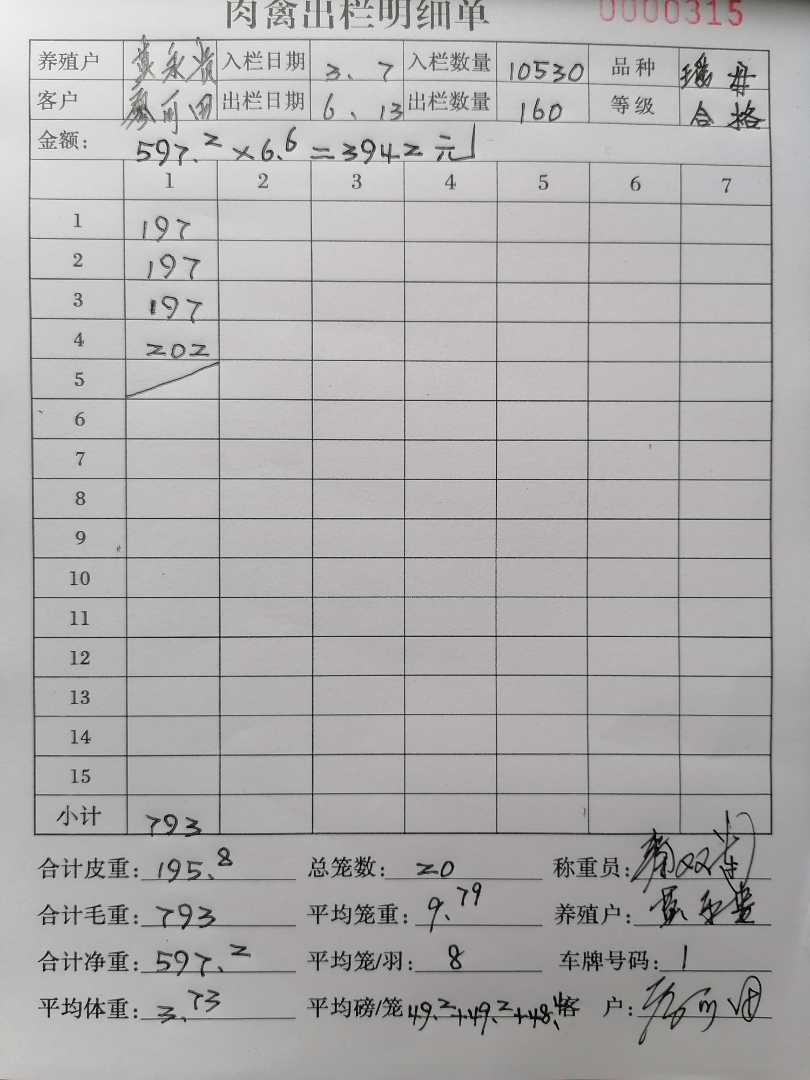 肉禽出栏明细单 0000315
养殖户 黄永贵 入栏日期 3.7 入栏数量 10530 品种
客户 廖可田 出栏日期 6.13 出栏数量 160 等级 合格
金额: 597.2×6.6=3942元
1 2 3 4 5 6 7
1 197
2 197
3 197
4 202
5
6
7
8
9
10
11
12
13
14
15
小计 793
合计皮重: 195.8 总笼数: 20 称重员:
合计毛重: 793 平均笼重: 9.79 养殖户: 黄永贵
合计净重: 597.2 平均笼/羽: 8 车牌号码: 1
平均体重: 3.73 平均磅/笼 49.2+49.2+48.4 客 户: